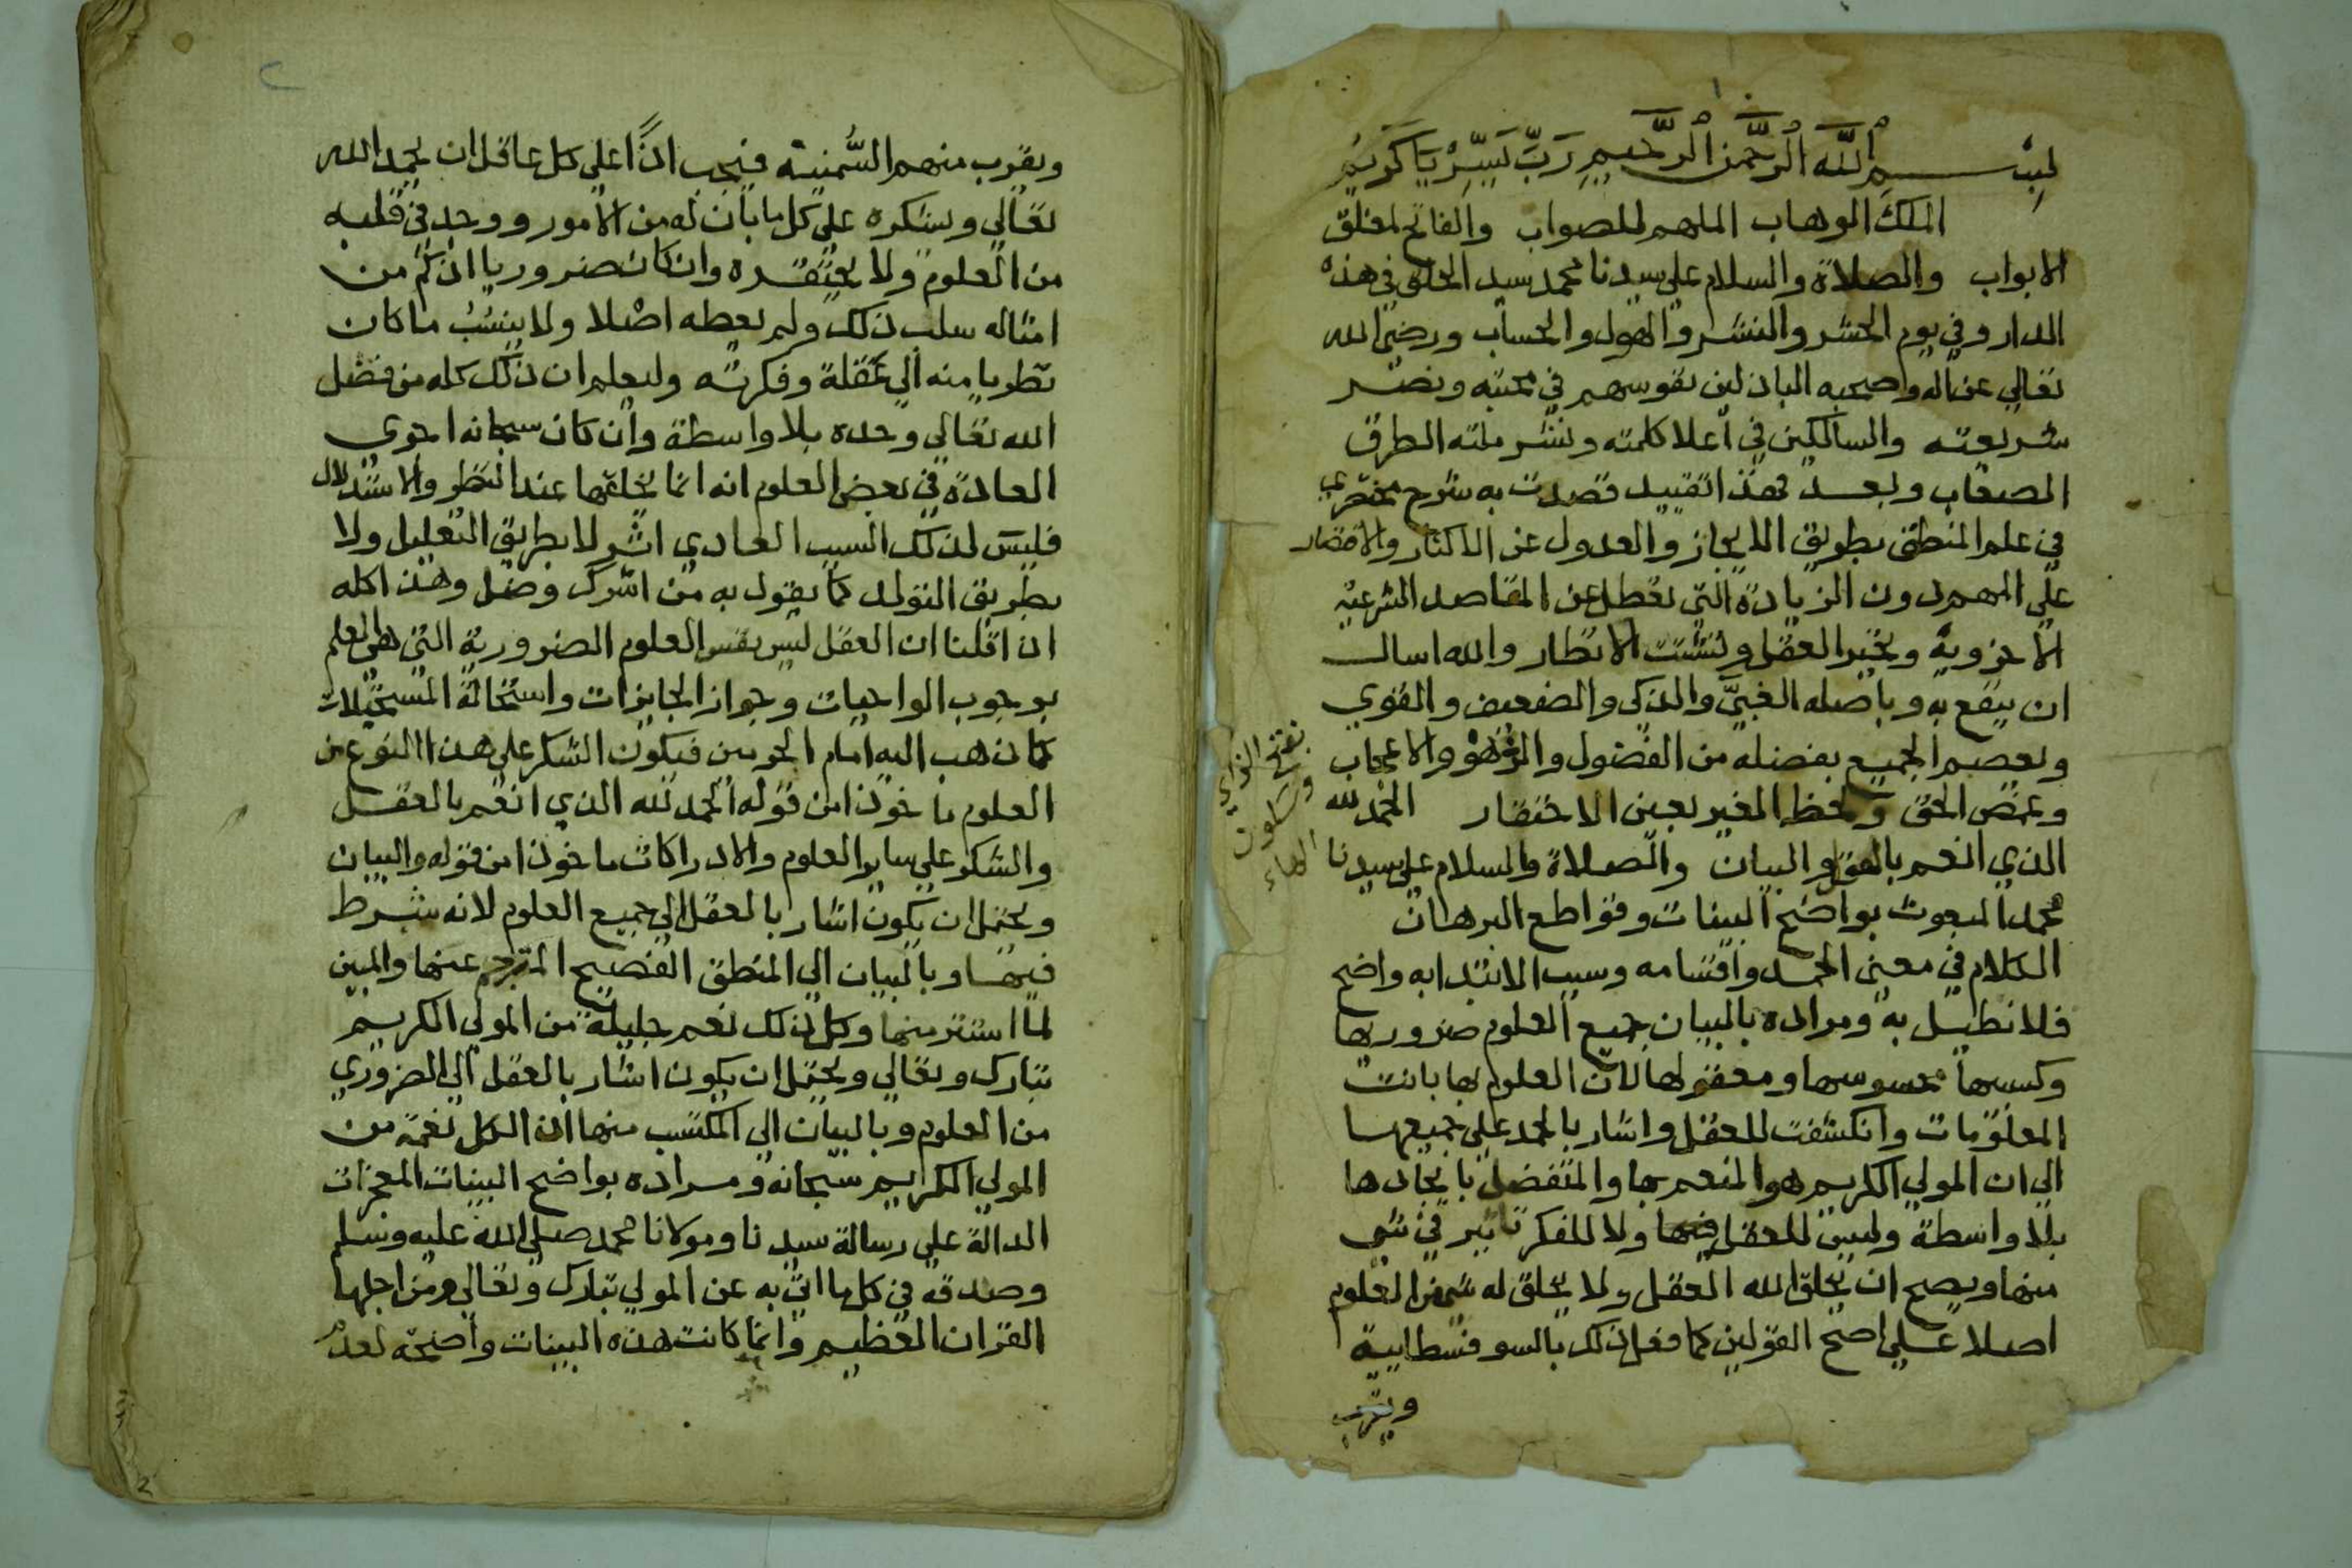 بسم الله الرحمن الرحيم رب يسر يا كريم
الملك الوهاب الملهم للصواب والفاتح لمغلق
الابواب والصلاة والسلام علي سيدنا محمد سيد الخلق في هذه
الدار وفي يوم الحشر والنشر والهول والحساب ورضي الله
تعالي عن اله واصحبه الباذلين نفوسهم في محبته ونصر
شريعته والسالكين في اعلا كلمته ونشر ملته الطرق
الصعاب وبعد فهذا تقييد قصدت به شرح مختصري
في علم المنطق بطريق الايجاز والعدول عن الاكثار والاقتصار
علي المهم دون الزيادة التي تعطل عن المقاصد الشرعية
الاخروية وتحير العقل وتشتت الانظار والله اسال
ان ينفع به وباصله الغبي والذكي والضعيف والقوي
ويعصم الجميع بفضله من الفضول والزهو والاعجاب
وغمص الحق ولحظ الغير بعين الاحتقار الحمد لله
الذي انعم بالعقل والبيان والصلاة والسلام علي سيدنا
محمد المبعوث بواضح البينات وقواطع البرهان
الكلام في معني الحمد واقسامه وسبب الابتدا به واضح
فلا نطيل به ومراده بالبيان جميع العلوم ضروريها
وكسبيها محسوسها ومعقولها لان العلوم بها بانت
المعلومات وانكشفت للعقل واشار بالحمد علي جميعها
الي ان المولي الكريم هو المنعم بها والمتفضل بايجادها
بلا واسطة وليس للعقل فيها ولا للفكر تاثير في شي
منها ويصح ان يخلق الله العقل ولا يخلق له شي من العلوم
اصلا علي اصح القولين كما فعل ذلك بالسوفسطايية
ويقرب
بفتح الزاي
وسكون
الهاء
ويقرب منهم السُّمنية فيجب اذًا علي كل عاقل ان يحمد الله
تعالي ويشكره علي كل ما بان له من الامور ووجد في قلبه
من العلوم ولا يحتقره وان كان ضروريا اذ كم من
امثاله سلب ذلك ولم يعطه اصلا ولا ينسب ما كان
نظريا منه الي عقله وفكرته وليعلم ان ذلك كله من فضل
الله تعالي وحده بلا واسطة وان كان سبحانه اجري
العادة في بعض العلوم انه انما يخلقها عند النظر والاستدلال
فليس لذلك السبب العادي اثر لا بطريق التعليل ولا
بطريق التولد كما يقول به من اشرك وضل وهذا كله
اذا قلنا ان العقل ليس نفس العلوم الضرورية التي هي العلم
بوجوب الواجبات وجواز الجايزات واستحالة المستحيلات
كما ذهب اليه امام الحرمين فيكون الشكر علي هذا النوع من
العلوم ماخوذا من قوله الحمد لله الذي انعم بالعقل
والشكر علي ساير العلوم والادراكات ماخوذا من قوله والبيان
ويحتمل ان يكون اشار بالعقل الي جميع العلوم لانه شرط
فيها وبالبيان الي المنطق الفصيح المترجم عنها والمبين
لما استتر منها وكل ذلك نعم جليلة من المولي الكريم
تبارك وتعالي ويحتمل ان يكون اشار بالعقل الي الضروري
من العلوم وبالبيان الي المكتسب منها اذ الكل نعمة من
المولي الكريم سبحانه ومراده بواضح البينات المعجزات
الدالة علي رسالة سيدنا ومولانا محمد صلي الله عليه وسلم
وصدقه في كل ما اتي به عن المولي تبارك وتعالي ومن اجلها
القران العظيم وانما كانت هذه البينات واضحة لعدم